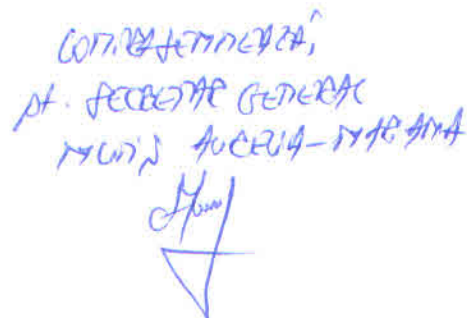 CONTRASEMNEAZĂ,
pt. SECRETAR GENERAL
AURELIA-MARIANA